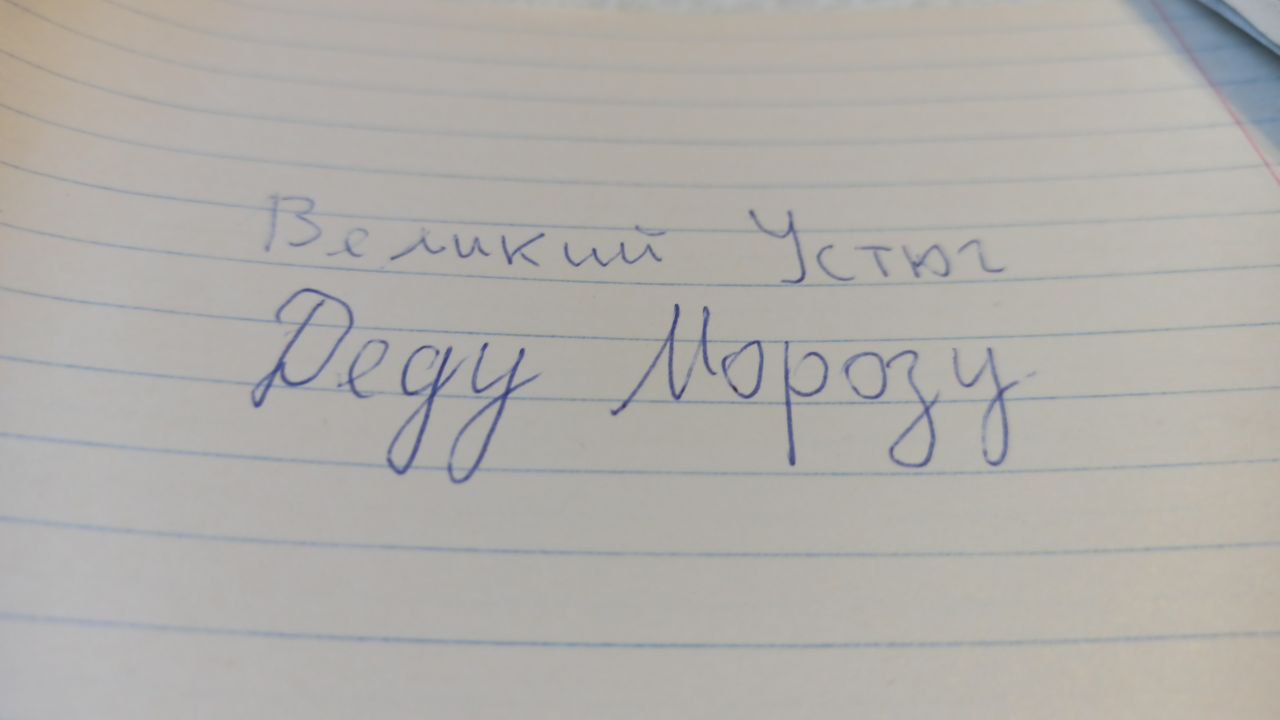 Великий Устюг
Деду Морозу